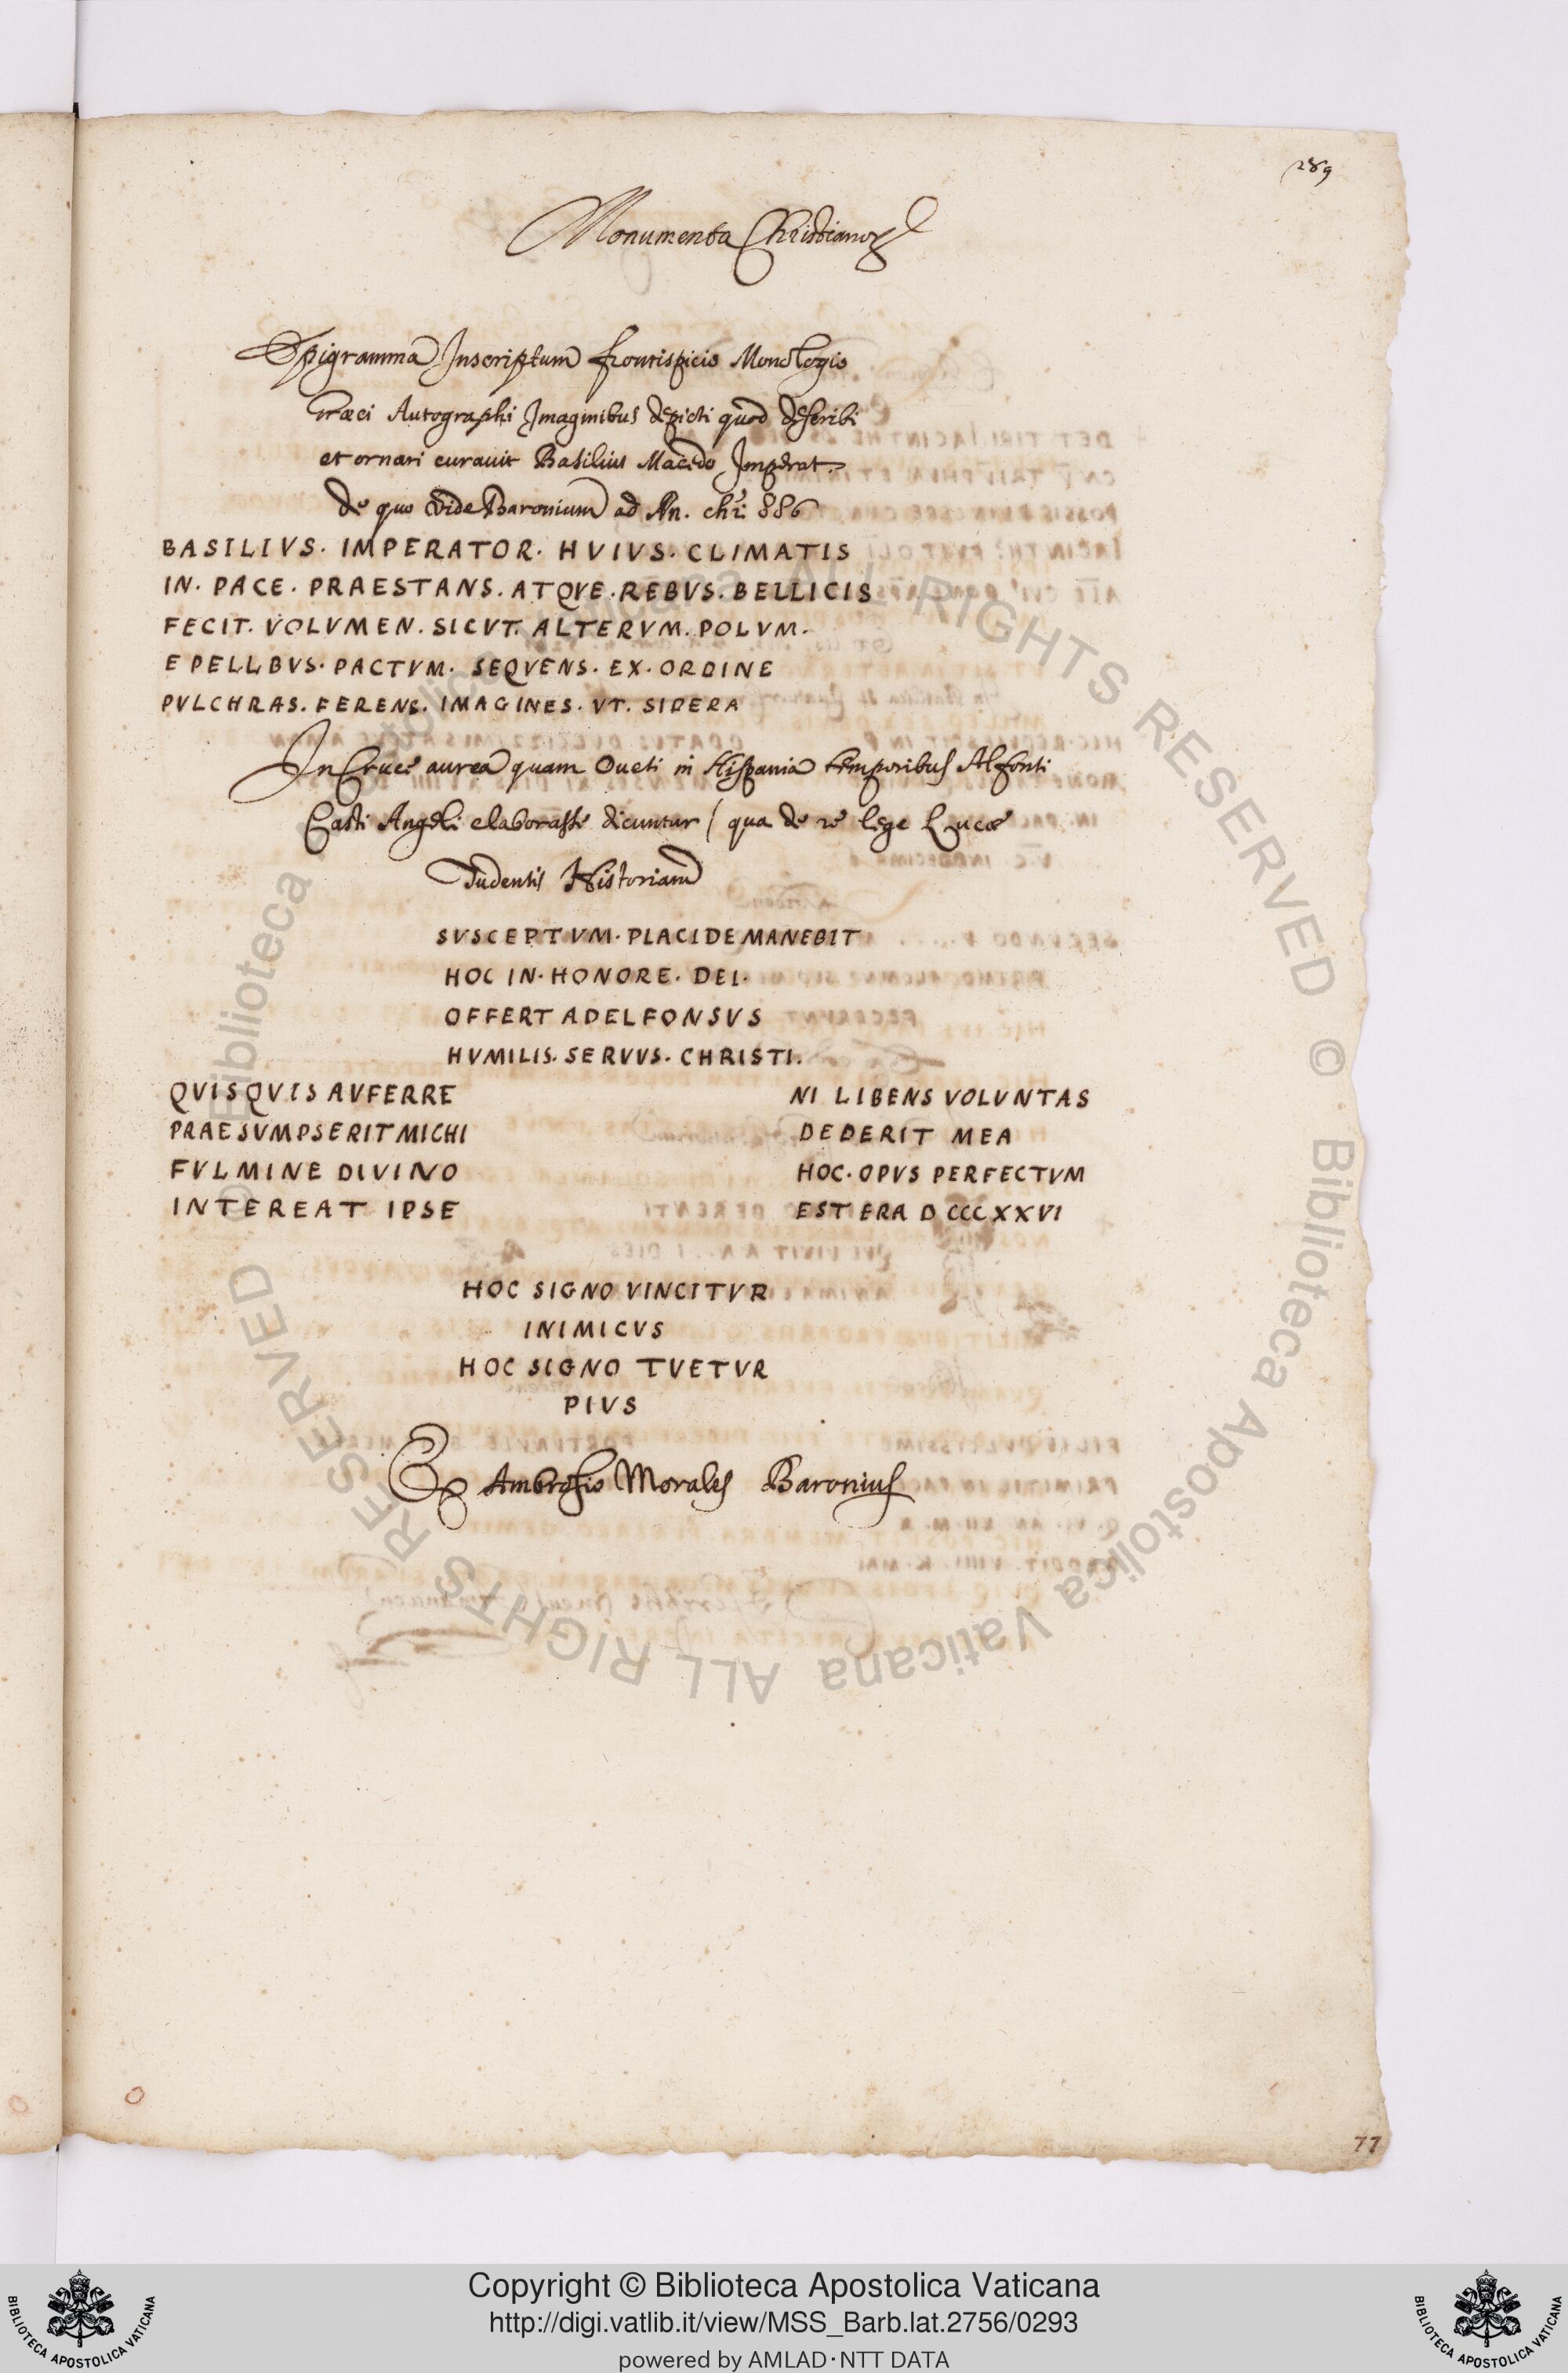 289
Monumenta Christianoꝝ
Epigramma Inscriptum frontispicio Monologio
Græci Autographi Imaginibus depicti quod describi
et ornari curauit Basilius Macedo Imperat.
de quo vide Baronium ad An. chri 886
BASILIVS. IMPERATOR. HVIVS. CLIMATIS
IN. PACE. PRAESTANS. ATQVE. REBVS. BELLICIS
FECIT. VOLVMEN. SICVT. ALTERVM. POLVM.
E PELLBVS. PACTVM. SEQVENS. EX. ORDINE
PVLCHRAS. FERENS. IMAGINES. VT. SIDERA
In Cruce aurea quam Oueti in Hispania temporibus Alfonti
Casti Angeli elaborasse dicuntur / qua de re lege Lucæ
Tudentis Historiam
SVSCEPTVM. PLACIDE MANEBIT
HOC IN. HONORE. DEI.
OFFERT ADELFONSVS
HVMILIS. SERVVS. CHRISTI.
QVISQVIS AVFERRE
PRAESVMPSERIT MICHI
FVLMINE DIVINO
INTEREAT IPSE
NI LIBENS VOLVNTAS
DEDERIT MEA
HOC. OPVS PERFECTVM
EST ERA D CCC XXVI
HOC SIGNO VINCITVR
INIMICVS
HOC SIGNO TVETVR
PIVS
Ex Ambrosio Morales Baronius
77
Copyright © Biblioteca Apostolica Vaticana
http://digi.vatlib.it/view/MSS_Barb.lat.2756/0293
powered by AMLAD·NTT DATA
BIBLIOTECA APOSTOLICA VATICANA
BIBLIOTECA APOSTOLICA VATICANA
© Biblioteca Apostolica Vaticana ALL RIGHTS RESERVED © Biblioteca Apostolica Vaticana ALL RIGHTS RESERVED